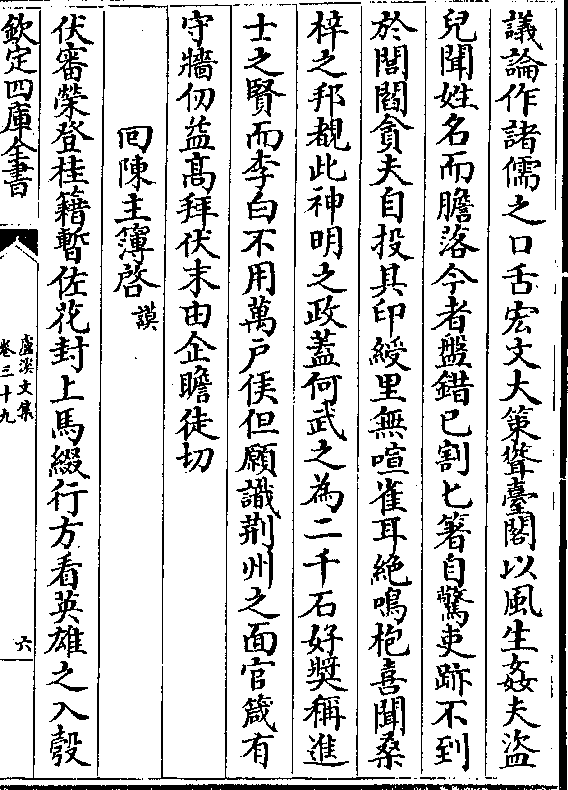 議論作諸儒之口舌宏文大策聳臺閣以風生姦夫盜
兒聞姓名而膽落今者盤錯已割匕箸自驚吏跡不到
於閭閻貪夫自投其印綬里無喧雀耳絶鳴枹喜聞桑
梓之邦覩此神明之政蓋何武之為二千石好奬稱進
士之賢而李白不用萬戶侯但願識荆州之面官箴有
守牆仞益髙拜伏末由企瞻徒切
囘陳主簿啓 謨
伏審榮登桂籍暫佐花封上馬綴行方看英雄之入彀
欽定四庫全書
盧溪文集
卷三十九
六